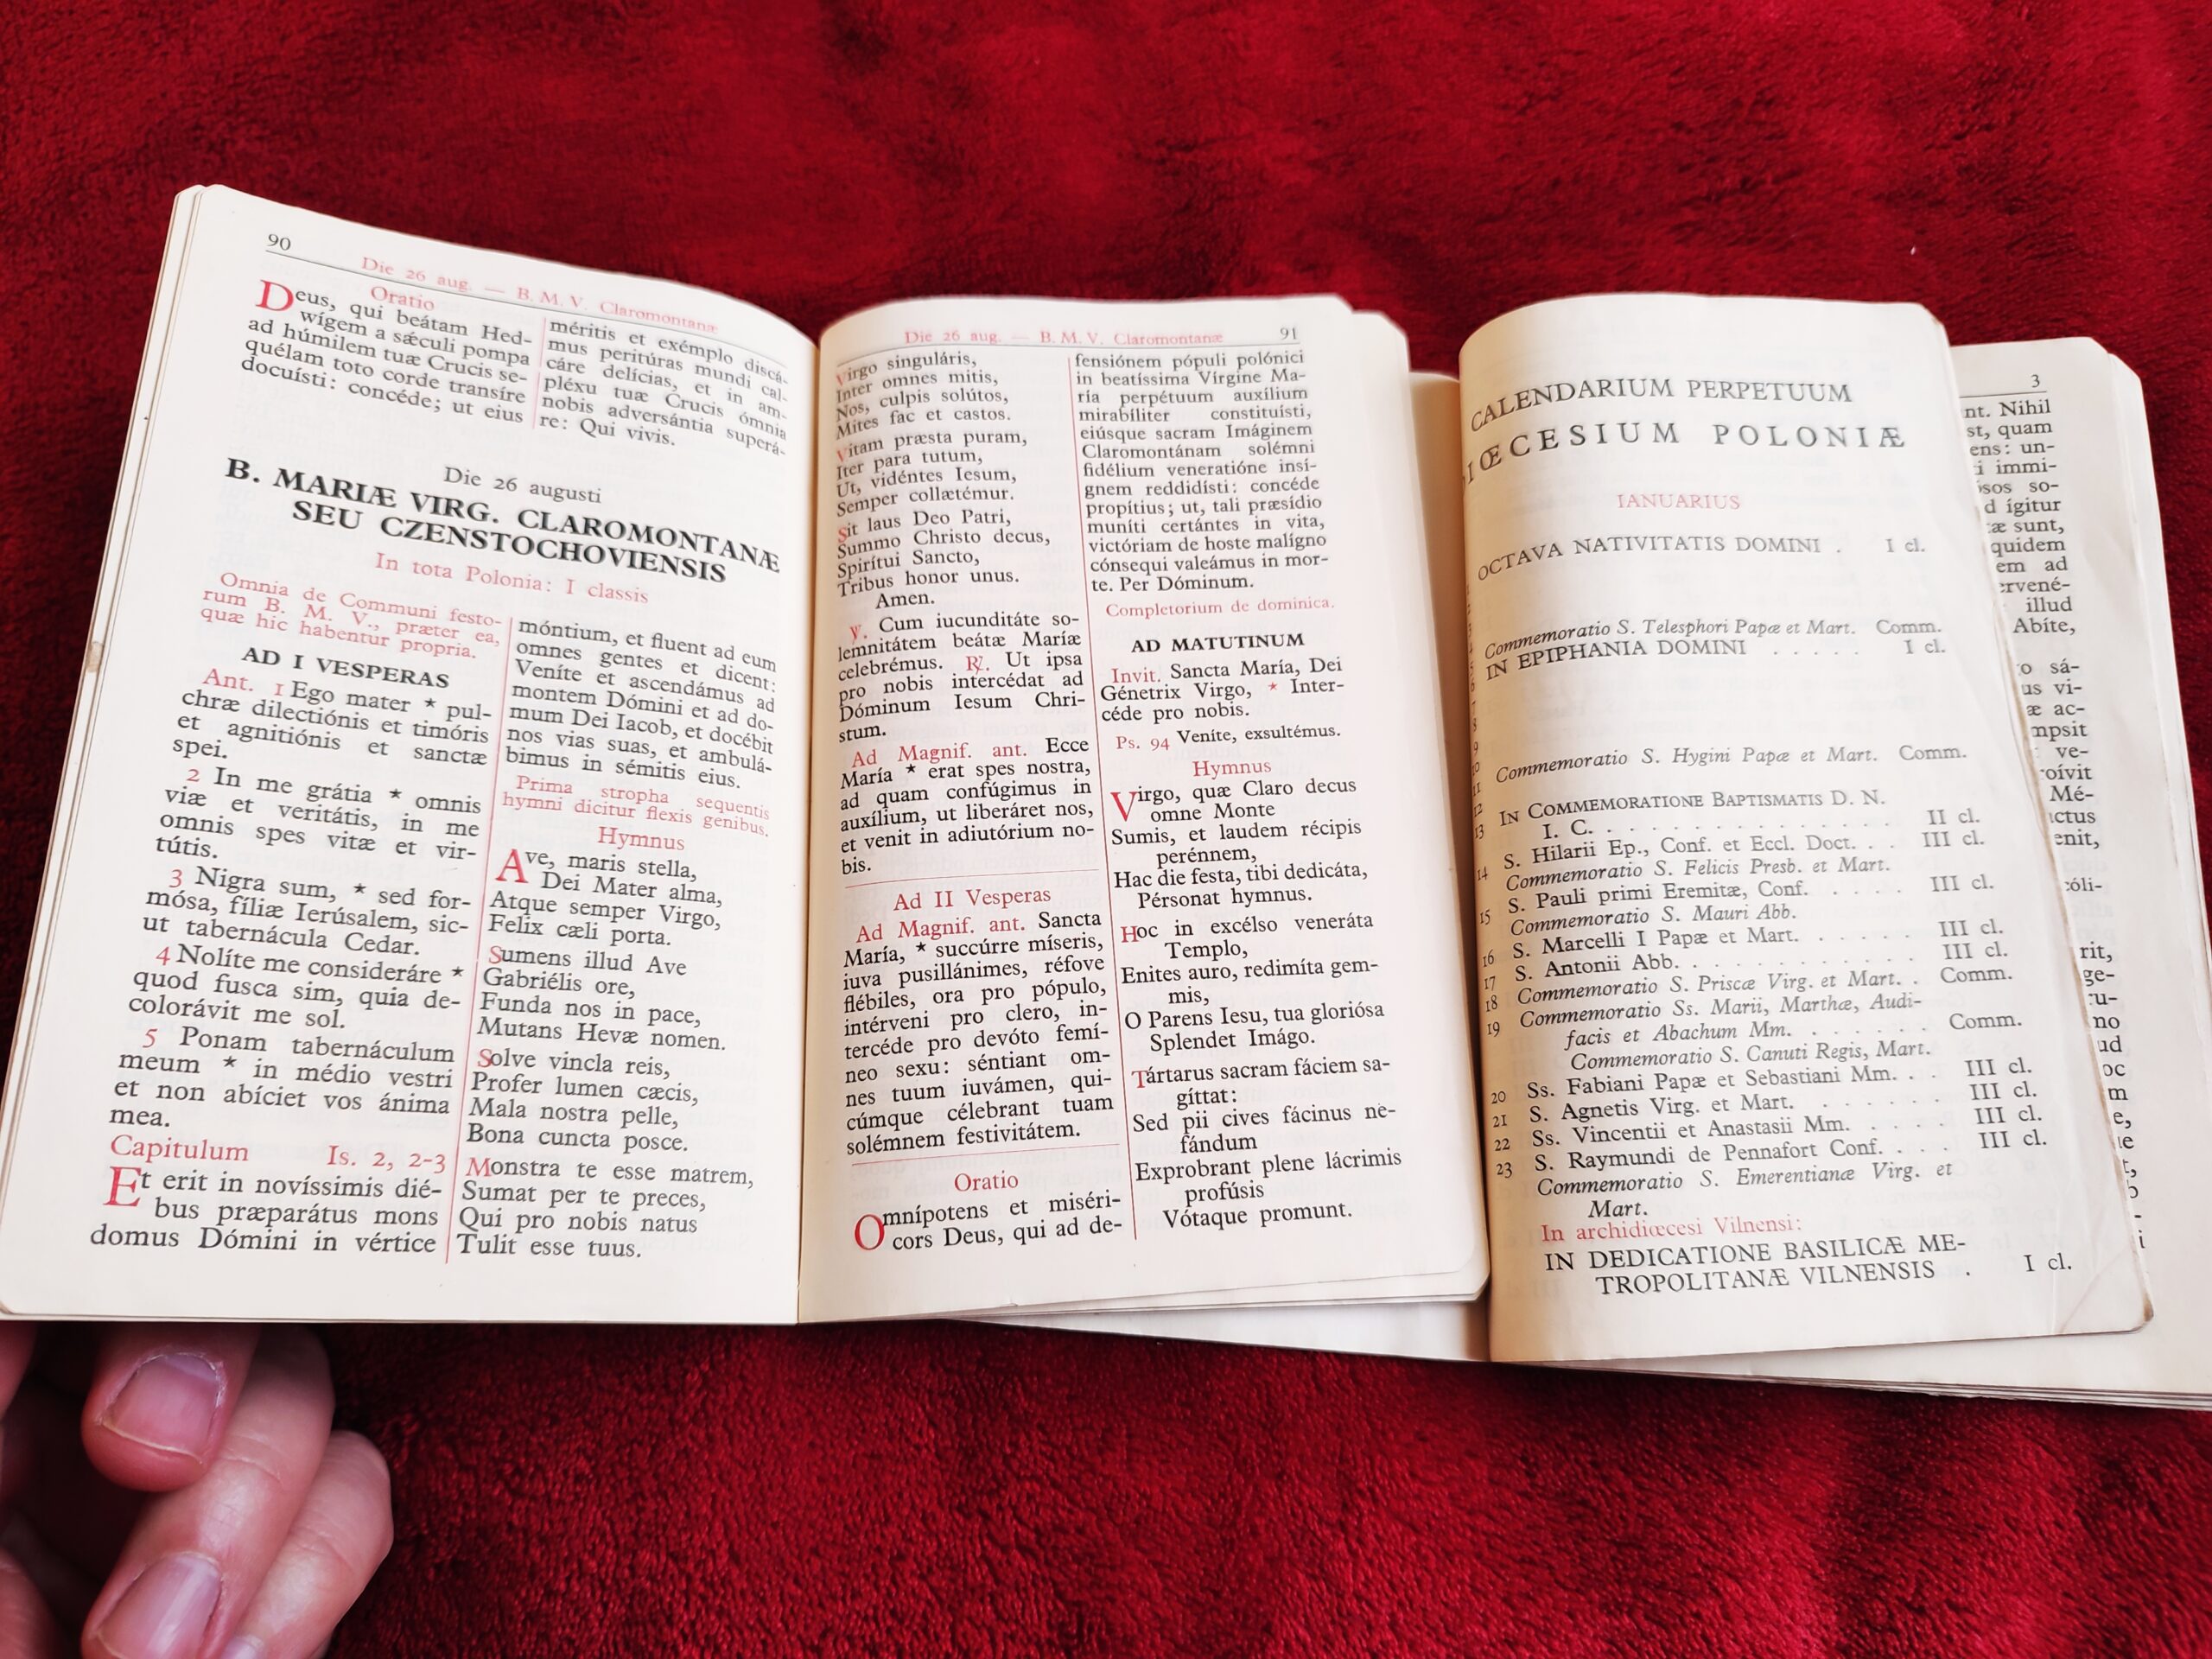 90
Die 26 aug. — B. M. V Claromontanæ
Oratio
Deus, qui beátam Hed-
wígem a sǽculi pompa
ad húmilem tuæ Crucis se-
quélam toto corde transíre
docuísti: concéde; ut eius
méritis et exémplo discá-
mus peritúras mundi cal-
cáre delícias, et in am-
pléxu tuæ Crucis ómnia
nobis adversántia superá-
re: Qui vivis.
Die 26 augusti
B. MARIÆ VIRG. CLAROMONTANÆ
SEU CZENSTOCHOVIENSIS
In tota Polonia: I classis
Omnia de Communi festo-
rum B. M. V., præter ea,
quæ hic habentur propria.
AD I VESPERAS
Ant. 1 Ego mater * pul-
chræ dilectiónis et timóris
et agnitiónis et sanctæ
spei.
2 In me grátia * omnis
viæ et veritátis, in me
omnis spes vitæ et vir-
tútis.
3 Nigra sum, * sed for-
mósa, fíliæ Ierúsalem, sic-
ut tabernácula Cedar.
4 Nolíte me consideráre *
quod fusca sim, quia de-
colorávit me sol.
5 Ponam tabernáculum
meum * in médio vestri
et non abíciet vos ánima
mea.
Capitulum Is. 2, 2-3
Et erit in novíssimis dié-
bus præparátus mons
domus Dómini in vértice
móntium, et fluent ad eum
omnes gentes et dicent:
Veníte et ascendámus ad
montem Dómini et ad do-
mum Dei Iacob, et docébit
nos vias suas, et ambulá-
bimus in sémitis eius.
Prima stropha sequentis
hymni dicitur flexis genibus.
Hymnus
Ave, maris stella,
Dei Mater alma,
Atque semper Virgo,
Felix cæli porta.
Sumens illud Ave
Gabriélis ore,
Funda nos in pace,
Mutans Hevæ nomen.
Solve vincla reis,
Profer lumen cæcis,
Mala nostra pelle,
Bona cuncta posce.
Monstra te esse matrem,
Sumat per te preces,
Qui pro nobis natus
Tulit esse tuus.
Die 26 aug. — B. M. V. Claromontanæ
91
Virgo singuláris,
Inter omnes mitis,
Nos, culpis solútos,
Mites fac et castos.
Vitam præsta puram,
Iter para tutum,
Ut, vidéntes Iesum,
Semper collætémur.
Sit laus Deo Patri,
Summo Christo decus,
Spirítui Sancto,
Tribus honor unus.
Amen.
℣. Cum iucunditáte so-
lemnitátem beátæ Maríæ
celebrémus. ℟. Ut ipsa
pro nobis intercédat ad
Dóminum Iesum Chri-
stum.
Ad Magnif. ant. Ecce
María * erat spes nostra,
ad quam confúgimus in
auxílium, ut liberáret nos,
et venit in adiutórium no-
bis.
Ad II Vesperas
Ad Magnif. ant. Sancta
María, * succúrre míseris,
iuva pusillánimes, réfove
flébiles, ora pro pópulo,
intérveni pro clero, in-
tercéde pro devóto femí-
neo sexu: séntiant om-
nes tuum iuvámen, qui-
cúmque célebrant tuam
solémnem festivitátem.
Oratio
Omnípotens et miséri-
cors Deus, qui ad de-
fensiónem pópuli polónici
in beatíssima Vírgine Ma-
ría perpétuum auxílium
mirabíliter constituísti,
eiúsque sacram Imáginem
Claromontánam solémni
fidélium veneratióne insí-
gnem reddidísti: concéde
propítius; ut, tali præsídio
muníti certántes in vita,
victóriam de hoste malígno
cónsequi valeámus in mor-
te. Per Dóminum.
Completorium de dominica.
AD MATUTINUM
Invit. Sancta María, Dei
Génetrix Virgo, * Inter-
céde pro nobis.
Ps. 94 Veníte, exsultémus.
Hymnus
Virgo, quæ Claro decus
omne Monte
Sumis, et laudem récipis
perénnem,
Hac die festa, tibi dedicáta,
Pérsonat hymnus.
Hoc in excélso veneráta
Templo,
Enites auro, redimíta gem-
mis,
O Parens Iesu, tua gloriósa
Splendet Imágo.
Tártarus sacram fáciem sa-
gíttat:
Sed pii cives fácinus ne-
fándum
Exprobrant plene lácrimis
profúsis
Vótaque promunt.
CALENDARIUM PERPETUUM
IŒCESIUM POLONIÆ
IANUARIUS
OCTAVA NATIVITATIS DOMINI . I cl.
Commemoratio S. Telesphori Papæ et Mart. Comm.
IN EPIPHANIA DOMINI . . . . . I cl.
7
8
9
10
Commemoratio S. Hygini Papæ et Mart. Comm.
11
12
13 IN COMMEMORATIONE BAPTISMATIS D. N.
I. C. . . . . . . . . . . . . . II cl.
14 S. Hilarii Ep., Conf. et Eccl. Doct. . . III cl.
Commemoratio S. Felicis Presb. et Mart.
15 S. Pauli primi Eremitæ, Conf. . . . . III cl.
Commemoratio S. Mauri Abb.
16 S. Marcelli I Papæ et Mart. . . . . . III cl.
17 S. Antonii Abb. . . . . . . . . . . III cl.
18 Commemoratio S. Priscæ Virg. et Mart. . Comm.
19 Commemoratio Ss. Marii, Marthæ, Audi-
facis et Abachum Mm. . . . . . . Comm.
Commemoratio S. Canuti Regis, Mart.
20 Ss. Fabiani Papæ et Sebastiani Mm. . . III cl.
21 S. Agnetis Virg. et Mart. . . . . . . III cl.
22 Ss. Vincentii et Anastasii Mm. . . . . III cl.
23 S. Raymundi de Pennafort Conf. . . . III cl.
Commemoratio S. Emerentianæ Virg. et
Mart.
In archidiœcesi Vilnensi:
IN DEDICATIONE BASILICÆ ME-
TROPOLITANÆ VILNENSIS . I cl.
3
nt. Nihil
st, quam
ens: un-
i immi-
sos so-
d ígitur
æ sunt,
quidem
em ad
ervené-
illud
Abíte,
o sá-
us vi-
æ ac-
mpsit
ve-
oívit
Mé-
ictus
enit,
óli-
rit,
ge-
tu-
no
ud
oc
m
e,
t,
i